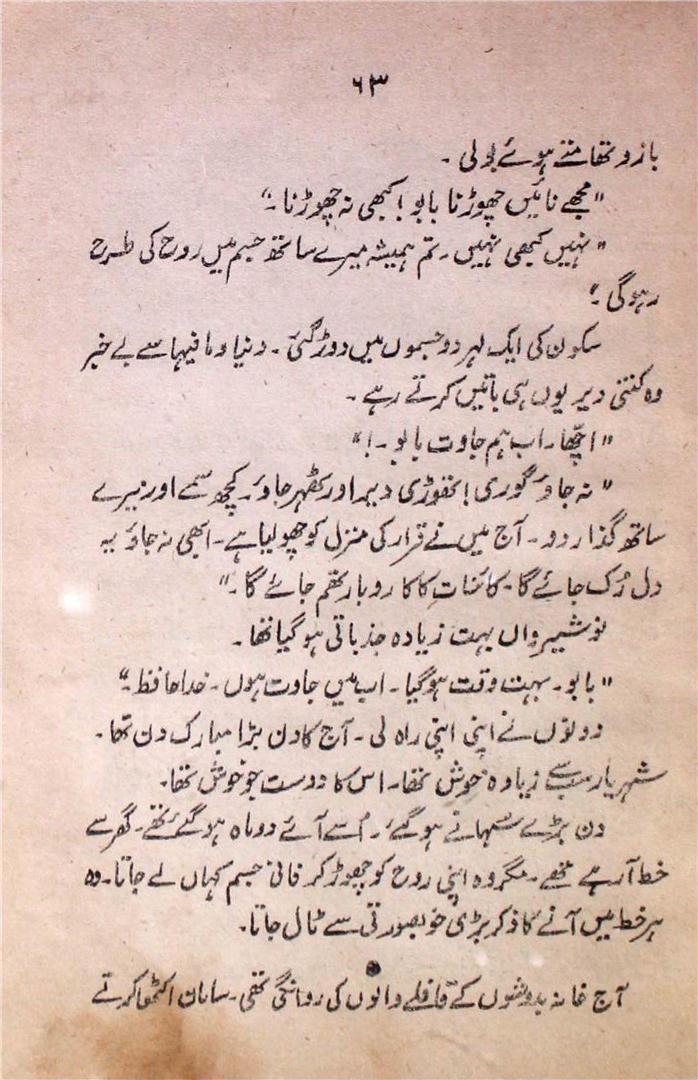 ۶۳
بازو تھامتے ہوئے بولی ۔
"مجھے نائیں چھوڑنا بابو! کبھی نہ چھوڑنا ۔"
"نہیں کبھی نہیں ۔ تم ہمیشہ میرے ساتھ جسم میں روح کی طرح
رہوگی ۔"
سکون کی ایک لہر دو جسموں میں دوڑ گئی ۔ دنیا و مافیہا سے بے خبر
وہ کتنی دیر یوں ہی باتیں کرتے رہے ۔
"اچھا ۔ اب ہم جاوت بابو ۔ !"
"نہ جاؤ گوری! تھوڑی دیر اور ٹھہر جاؤ ۔ کچھ سمے اور میرے
ساتھ گذار دو ۔ آج میں نے قرار کی منزل کو چھو لیا ہے ۔ ابھی نہ جاؤ یہ
دل رُک جائے گا ۔ کائنات کا کاروبار تھم جائے گا ۔"
نوشیرواں بہت زیادہ جذباتی ہو گیا تھا ۔
"بابو ۔ بہت وقت ہوگیا ۔ اب میں جاوت ہوں ۔ خدا حافظ ۔"
دونوں نے اپنی اپنی راہ لی ۔ آج کا دن بڑا مبارک دن تھا ۔
شہریار سب سے زیادہ خوش تھا ۔ اس کا دوست جو خوش تھا ۔
دن بڑے سہانے ہو گئے ۔ اُسے آئے دو ماہ ہو گئے تھے ۔ گھر سے
خط آ رہے تھے ۔ مگر وہ اپنی روح کو چھوڑ کر فانی جسم کہاں لے جاتا ۔ وہ
ہر خط میں آنے کا ذکر بڑی خوبصورتی سے ٹال جاتا ۔
آج خانہ بدوشوں کے قافلے والوں کی روانگی تھی ۔ سامان اکٹھا کرتے